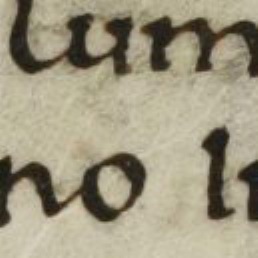 lum
no li